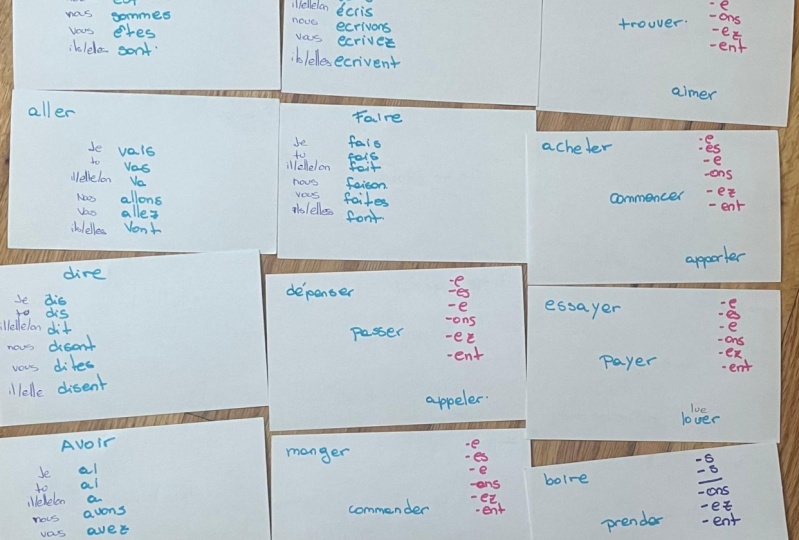 nous sommes
vous êtes
ils/elles sont
il/elle/on écris
nous ecrivons
vous ecrivez
ils/elles ecrivent
-e
trouver. -ons
-ez
-ent
aimer
aller
Je vais
tu vas
il/elle/on va
Nous allons
Vous allez
ils/elles vont
Faire
Je fais
tu fais
il/elle/on fait
nous faison
vous faites
ils/elles font
acheter -e
-es
-e
-ons
commencer -ez
-ent
apporter
dire
Je dis
tu dis
il/elle/on dit
nous disont
vous dites
il/elle disent
dépenser -e
-es
-e
-ons
passer -ez
-ent
appeler.
essayer -e
-es
-e
-ons
payer -ez
-ent
lue
louer
Avoir
Je ai
tu ai
il/elle/on a
nous avons
vous avez
manger -e
-es
-e
-ons
-ez
commander -ent
boire -s
-s
-ons
-ez
prender -ent